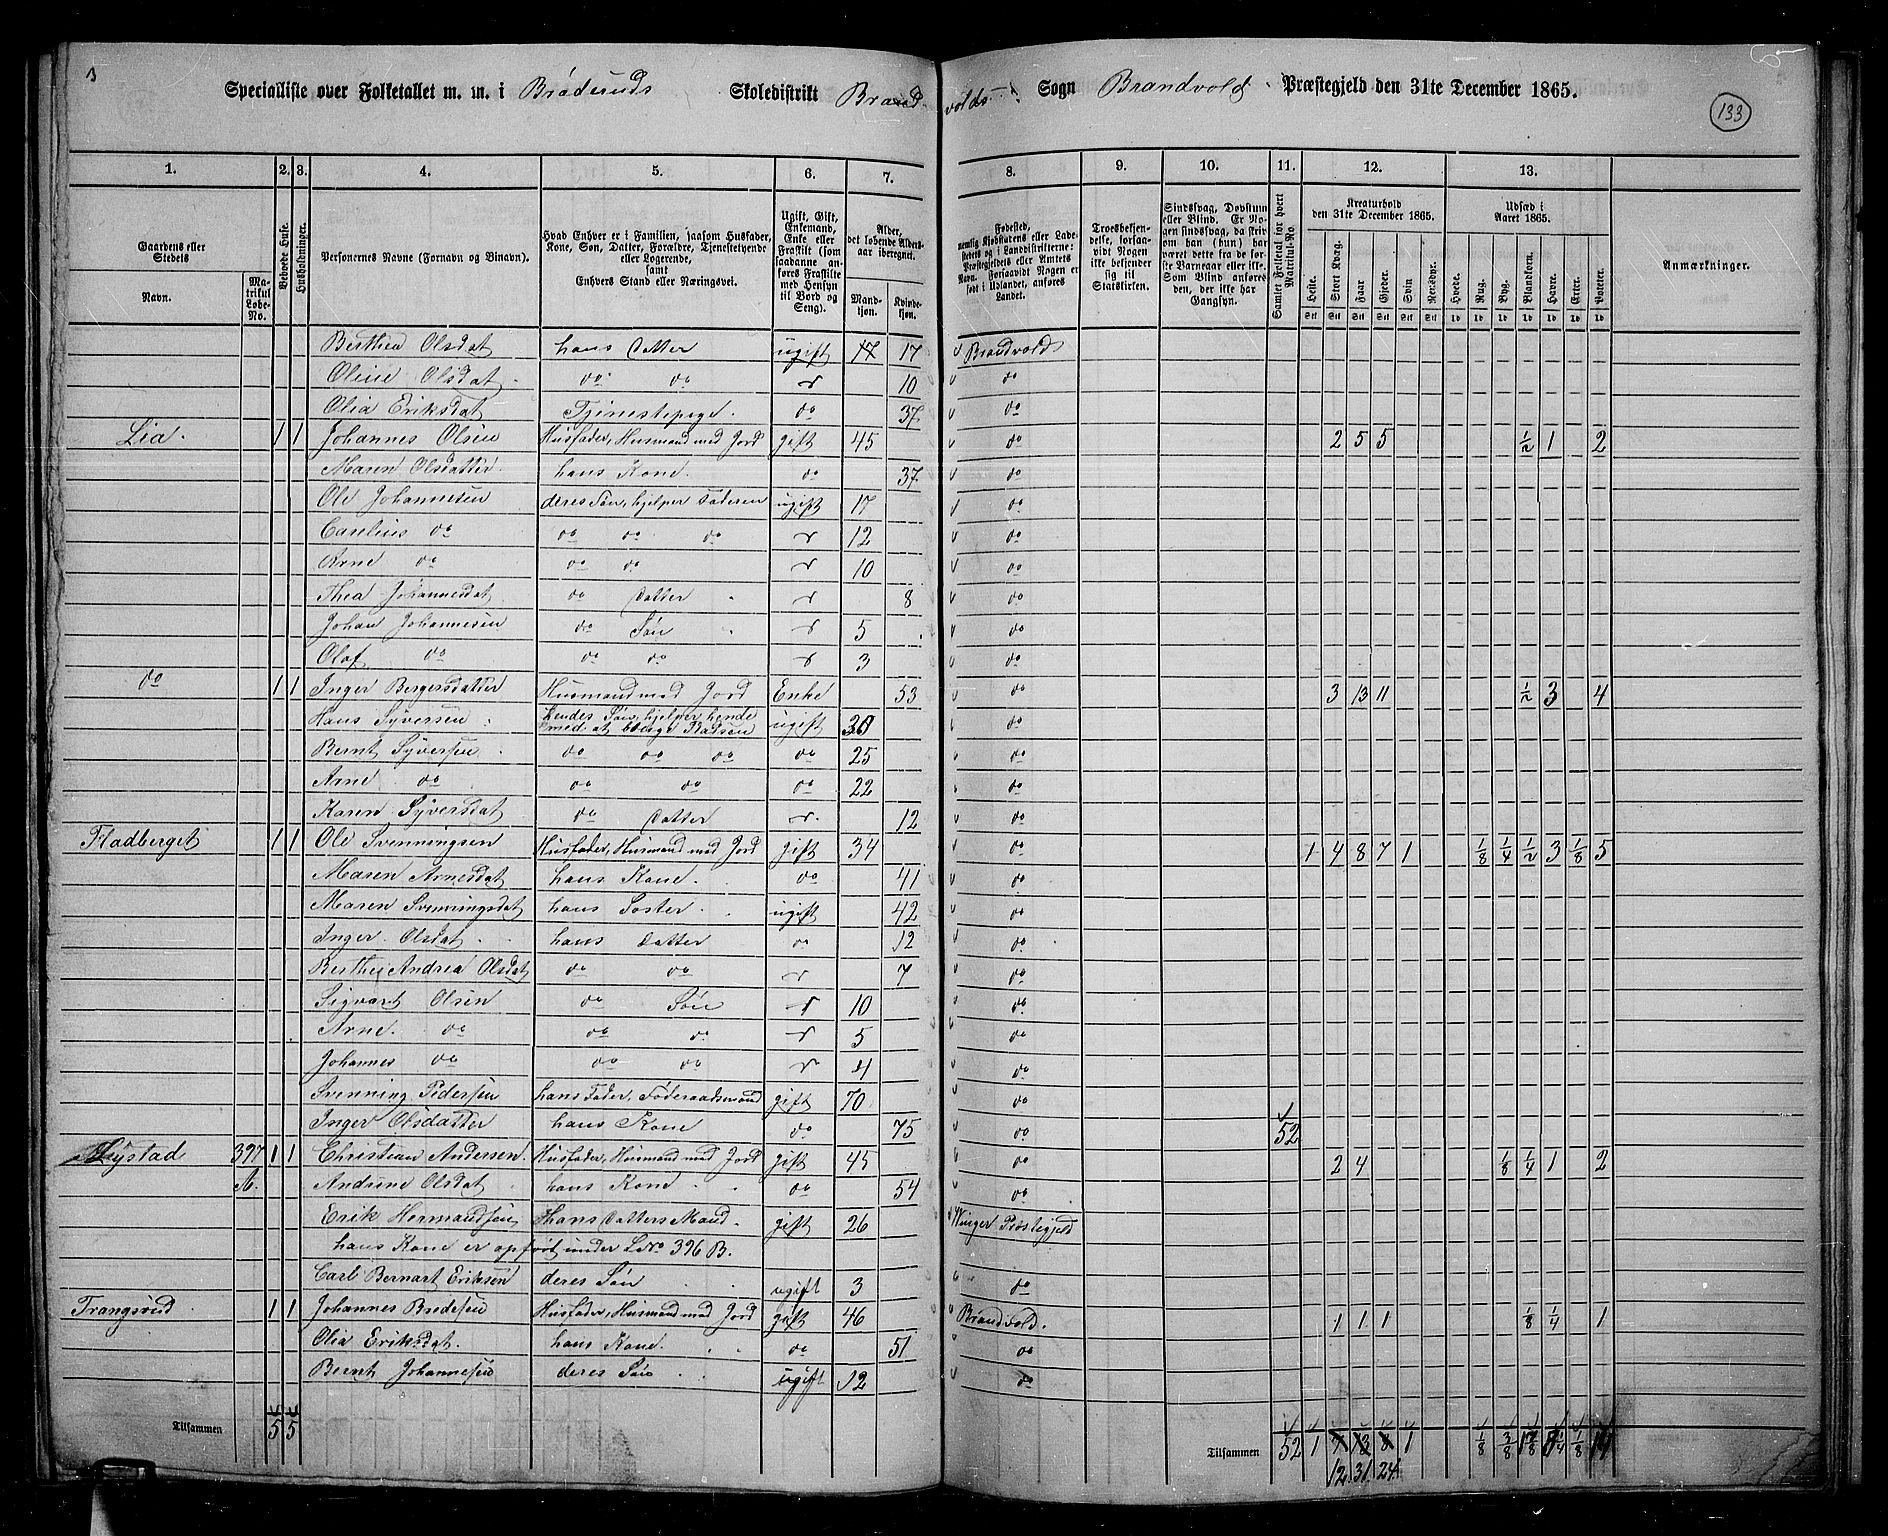 3
Specialliste over Folketallet m. m. i Bröderuds Skoledistrikt Brandvolds Sogn Brandvold Præstegjeld den 31te December 1865.
133
1. 2. 3. 4. 5. 6. 7. 8. 9. 10. 11. 12. 13.
Gaardens eller Stedets
Navn.
Matrikul Løbe-No.
Beboede Huse.
Husholdninger.
Personernes Navne (Fornavn og Binavn).
Hvad Enhver er i Familien, saasom Husfader, Kone, Søn, Datter, Forældre, Tjenestetyende eller Logerende, samt Enhvers Stand eller Næringsvei.
Ugift, Gift, Enkemand, Enke eller Fraskilt (som saadanne anføres Fraskilte med Hensyn til Bord og Seng).
Alder, det løbende Alders-aar iberegnet.
Mandkjøn. Kvindekjøn.
Fødested, nemlig Kjøbstadens eller Ladestedets og i Landdistrikterne: Præstegjeldets eller Amtets Navn. Forsaavidt Nogen er født i Udlandet, anføres Landet.
Troesbekjendelse, forsaavidt Nogen ikke bekjender sig til Statskirken.
Sindssvag, Døvstum eller Blind. Er Nogen sindssvag, da skrives om han (hun) har været dette fra de første Barneaar eller ikke. Som Blind anføres den, der ikke har Gangsyn.
Samlet Folketal for hvert Matrikul-No.
Kreaturhold den 31te December 1865.
Heste. Stort Kvæg. Faar. Gjeder. Svin. Rensdyr.
Udsæd i Aaret 1865.
Hvede. Rug. Byg. Blandkorn. Havre. Erter. Poteter.
Anmærkninger.
Berthea Olsdat hans Datter ugift 17 17 Brandvold
Oline Olsdat do do 10 do
Olia Eriksdat Tjenestepige. do 37 do
Lia. 1 1 Johannes Olsen Husfader, Husmand med Jord gift 45 do 2 5 5 1/2 1 2
Maren Olsdatter hans Kone. do 37 do
Ole Johannesen deres Søn, hjelper Faderen ugift 17 do
Carelius do do do do 12 do
Arne do do do 10 do
Thea Johannesdat do Datter 8 do
Johan Johannesen do Søn 5 do
Olaf do do do 3 do
do 1 1 Inger Bergersdatter Husmand med Jord Enke 53 do 3 13 11 1/2 3 4
Hans Syversen hendes Søn, hjelper hende med at besørge Pladsen ugift 30 do
Bernt Syversen do do do do 25 do
Arne do do do do 22 do
Karen Syversdat do Datter 12 do
Fladberget 1 1 Ole Svenningsen Husfader, Husmand med Jord gift 34 do 1 4 8 7 1 1/8 1/4 1/2 3 1/8 5
Maren Arnesdat hans Kone. do 41 do
Maren Svenningsdat hans Søster. ugift 42 do
Inger Olsdat hans Datter do 12 do
Berthe Andrea Olsdat do do 7 do
Sigvart Olsen do Søn 10 do
Arne. do do do 5 do
Johannes do do do 4 do
Svenning Pedersen hans Fader, Föderaadsmand gift 70 do
Inger Olsdatter hans Kone do 75 do 52
Lystad 397 1 1 Christian Andersen. Husfader, Husmand med Jord gift 45 do 2 4 1/8 1/4 1 2
A. Andrine Olsdat hans Kone do 54 do
Erik Hermandsen Hans Datters Mand. gift 26 Winger Præstegjeld
hans Kone er opfört under L No 396 B.
Carl Bernart Eriksen deres Søn ugift 3 do
Trangsrud 1 1 Johannes Bredesen Husfader, Husmand med Jord gift 46 Brandvold. 1 1 1 1/8 1/4 1
Olia Eriksdat. hans Kone. do 51 do
Bernt Johannesen deres Søn ugift 12 do
Tilsammen 5 5
Tilsammen 52 1 7 13 8 1 1/8 3/8 1 7/8 8 1/4 1/8 14
12 31 24